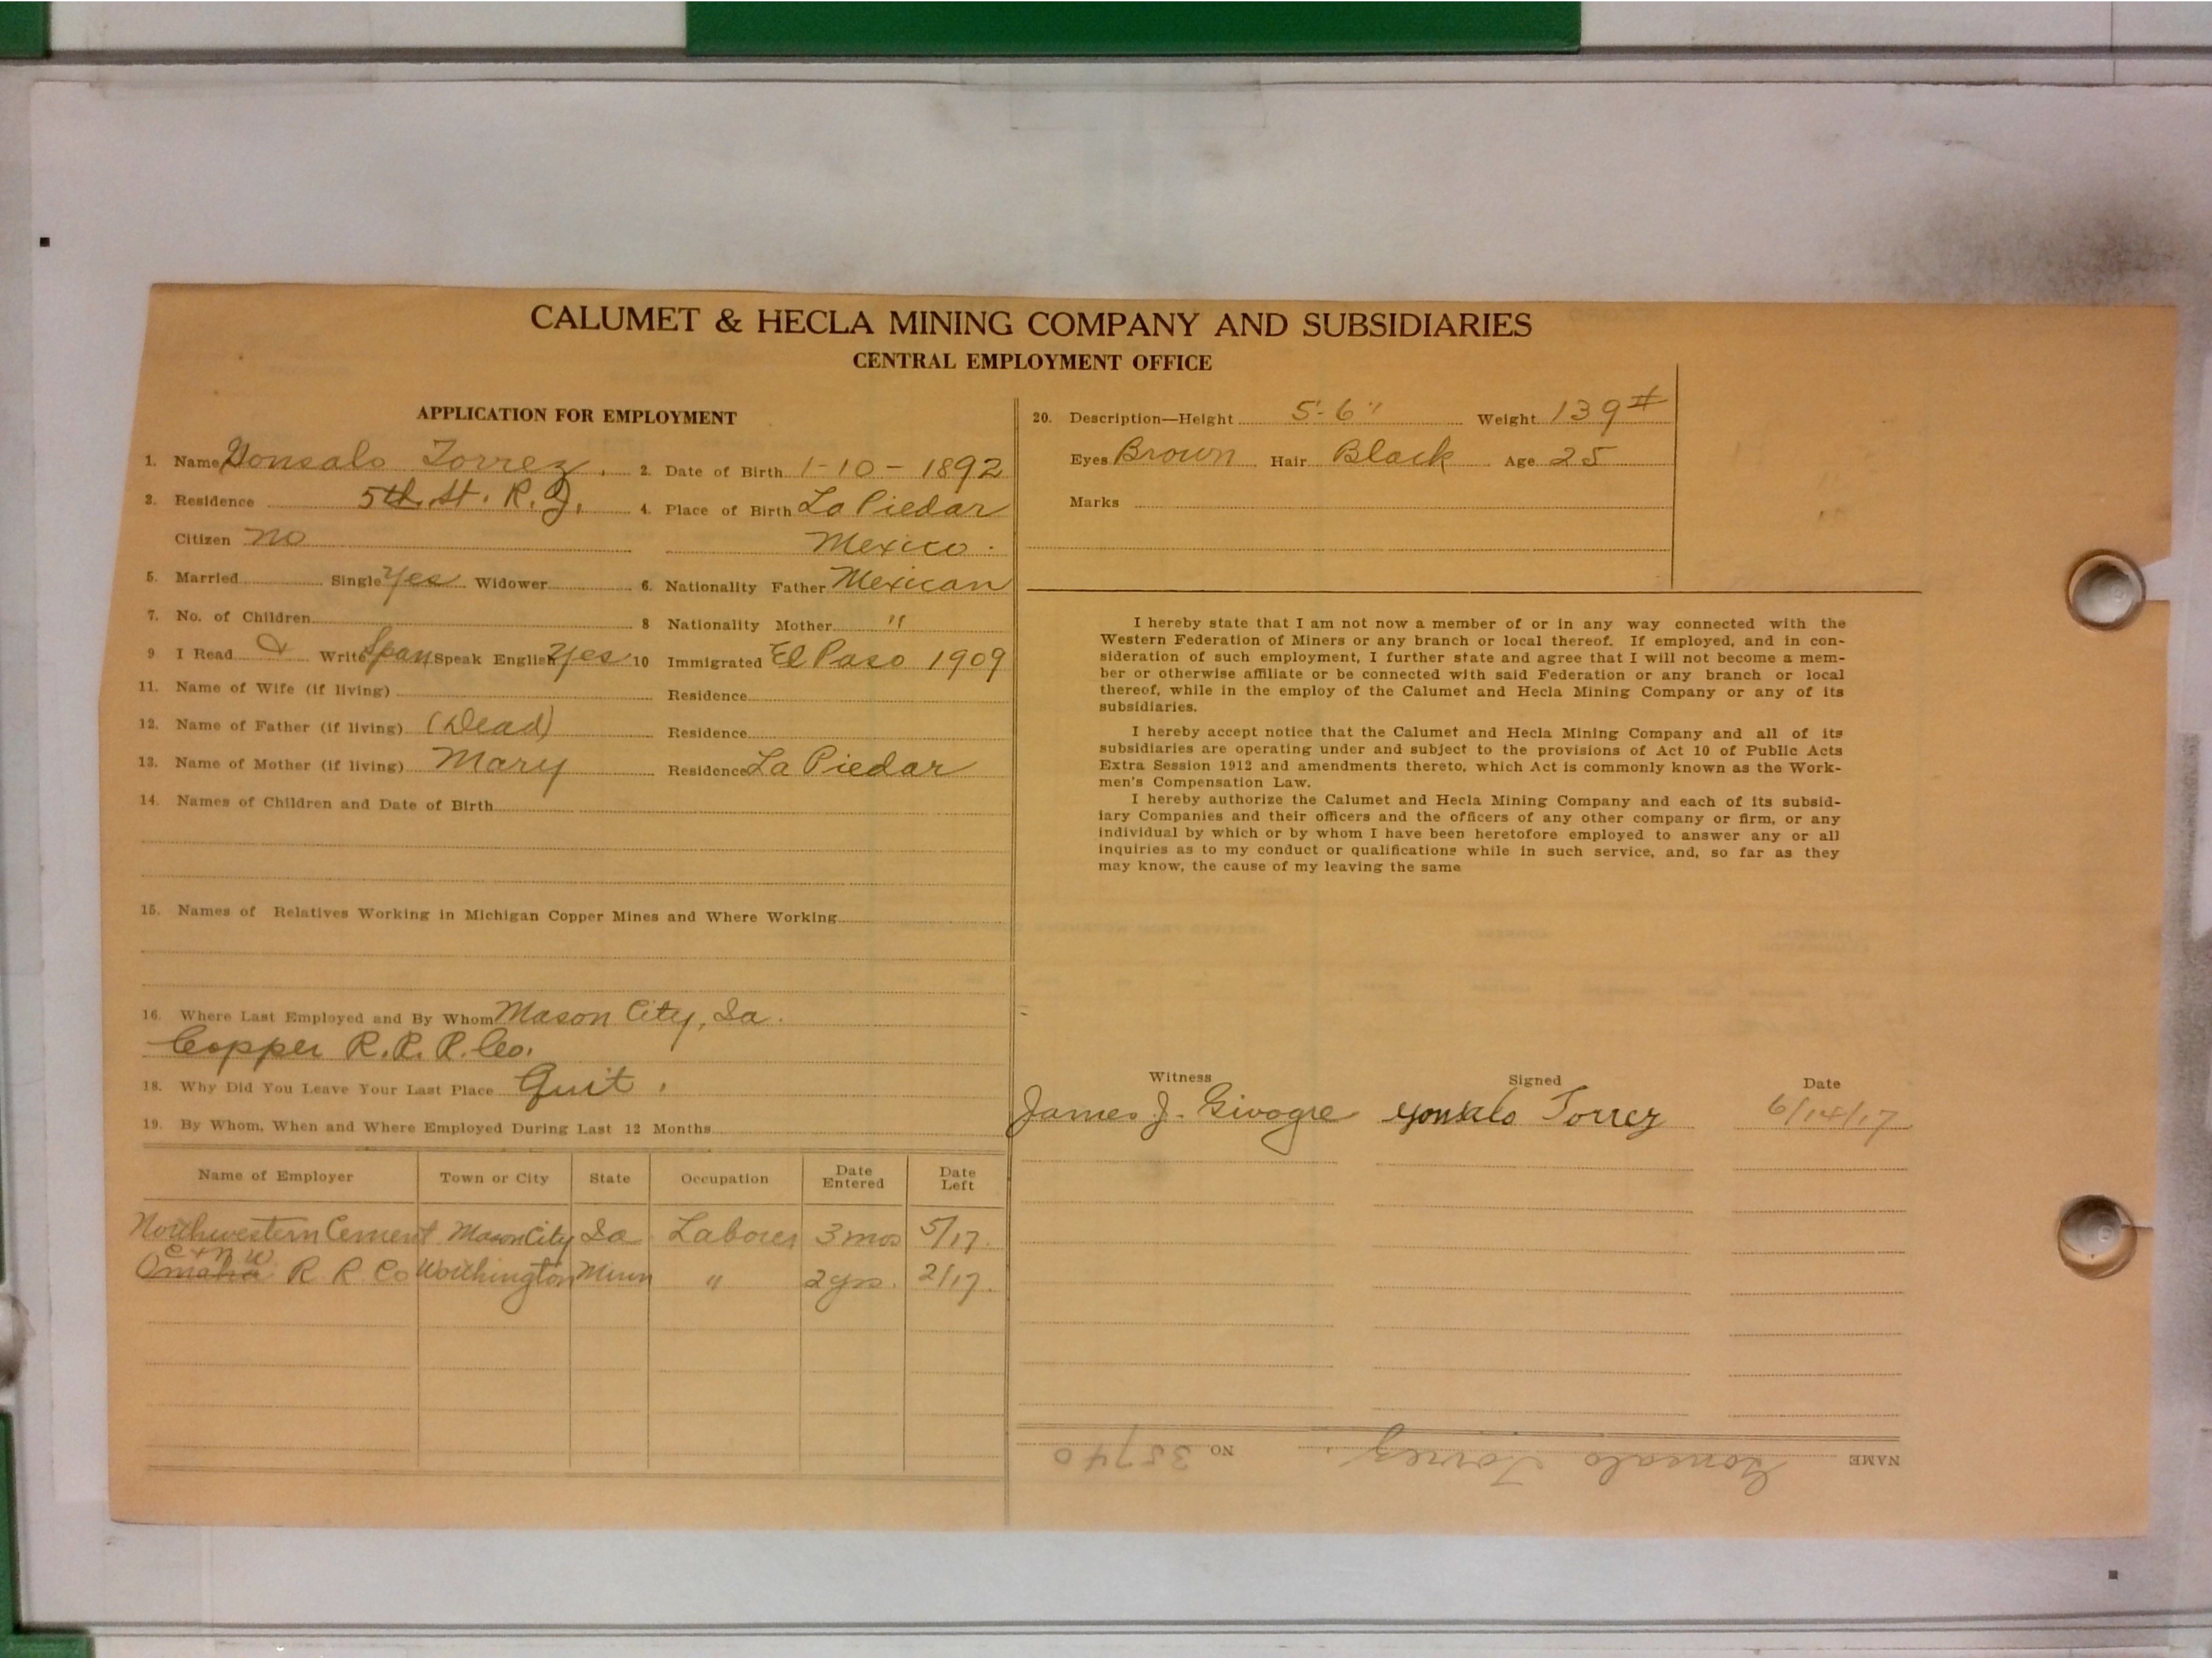 CALUMET & HECLA MINING COMPANY AND SUBSIDIARIES
CENTRAL EMPLOYMENT OFFICE
APPLICATION FOR EMPLOYMENT
1. Name Gonsalo Torrez. 2. Date of Birth 1-10-1892
3. Residence 5th St. R.J. 4. Place of Birth La Piedar
Citizen no Mexico.
5. Married Single Yes Widower 6. Nationality Father Mexican
7. No. of Children 8 Nationality Mother "
9 I Read & Write Span Speak English Yes 10 Immigrated El Paso 1909
11. Name of Wife (if living) Residence
12. Name of Father (if living) (Dead) Residence
13. Name of Mother (if living) Mary Residence La Piedar
14. Names of Children and Date of Birth
15. Names of Relatives Working in Michigan Copper Mines and Where Working
16. Where Last Employed and By Whom Mason City, Ia.
Copper R.R. R. Co.
18. Why Did You Leave Your Last Place Quit.
19. By Whom, When and Where Employed During Last 12 Months
Name of Employer Town or City State Occupation Date Entered Date Left
Northwestern Cement Mason City Ia Laborer 3 mos 5/17.
C + N W
Omaha R R Co Worthington Minn " 2 yrs. 2/17.
20. Description—Height 5'-6" Weight 139#
Eyes Brown Hair Black Age 25
Marks
I hereby state that I am not now a member of or in any way connected with the
Western Federation of Miners or any branch or local thereof. If employed, and in con-
sideration of such employment, I further state and agree that I will not become a mem-
ber or otherwise affiliate or be connected with said Federation or any branch or local
thereof, while in the employ of the Calumet and Hecla Mining Company or any of its
subsidiaries.
I hereby accept notice that the Calumet and Hecla Mining Company and all of its
subsidiaries are operating under and subject to the provisions of Act 10 of Public Acts
Extra Session 1912 and amendments thereto, which Act is commonly known as the Work-
men's Compensation Law.
I hereby authorize the Calumet and Hecla Mining Company and each of its subsid-
iary Companies and their officers and the officers of any other company or firm, or any
individual by which or by whom I have been heretofore employed to answer any or all
inquiries as to my conduct or qualifications while in such service, and, so far as they
may know, the cause of my leaving the same
Witness Signed Date
James J. Givogre Gonsalo Torrez 6/14/17
NAME Gonsalo Torrez. NO 35740